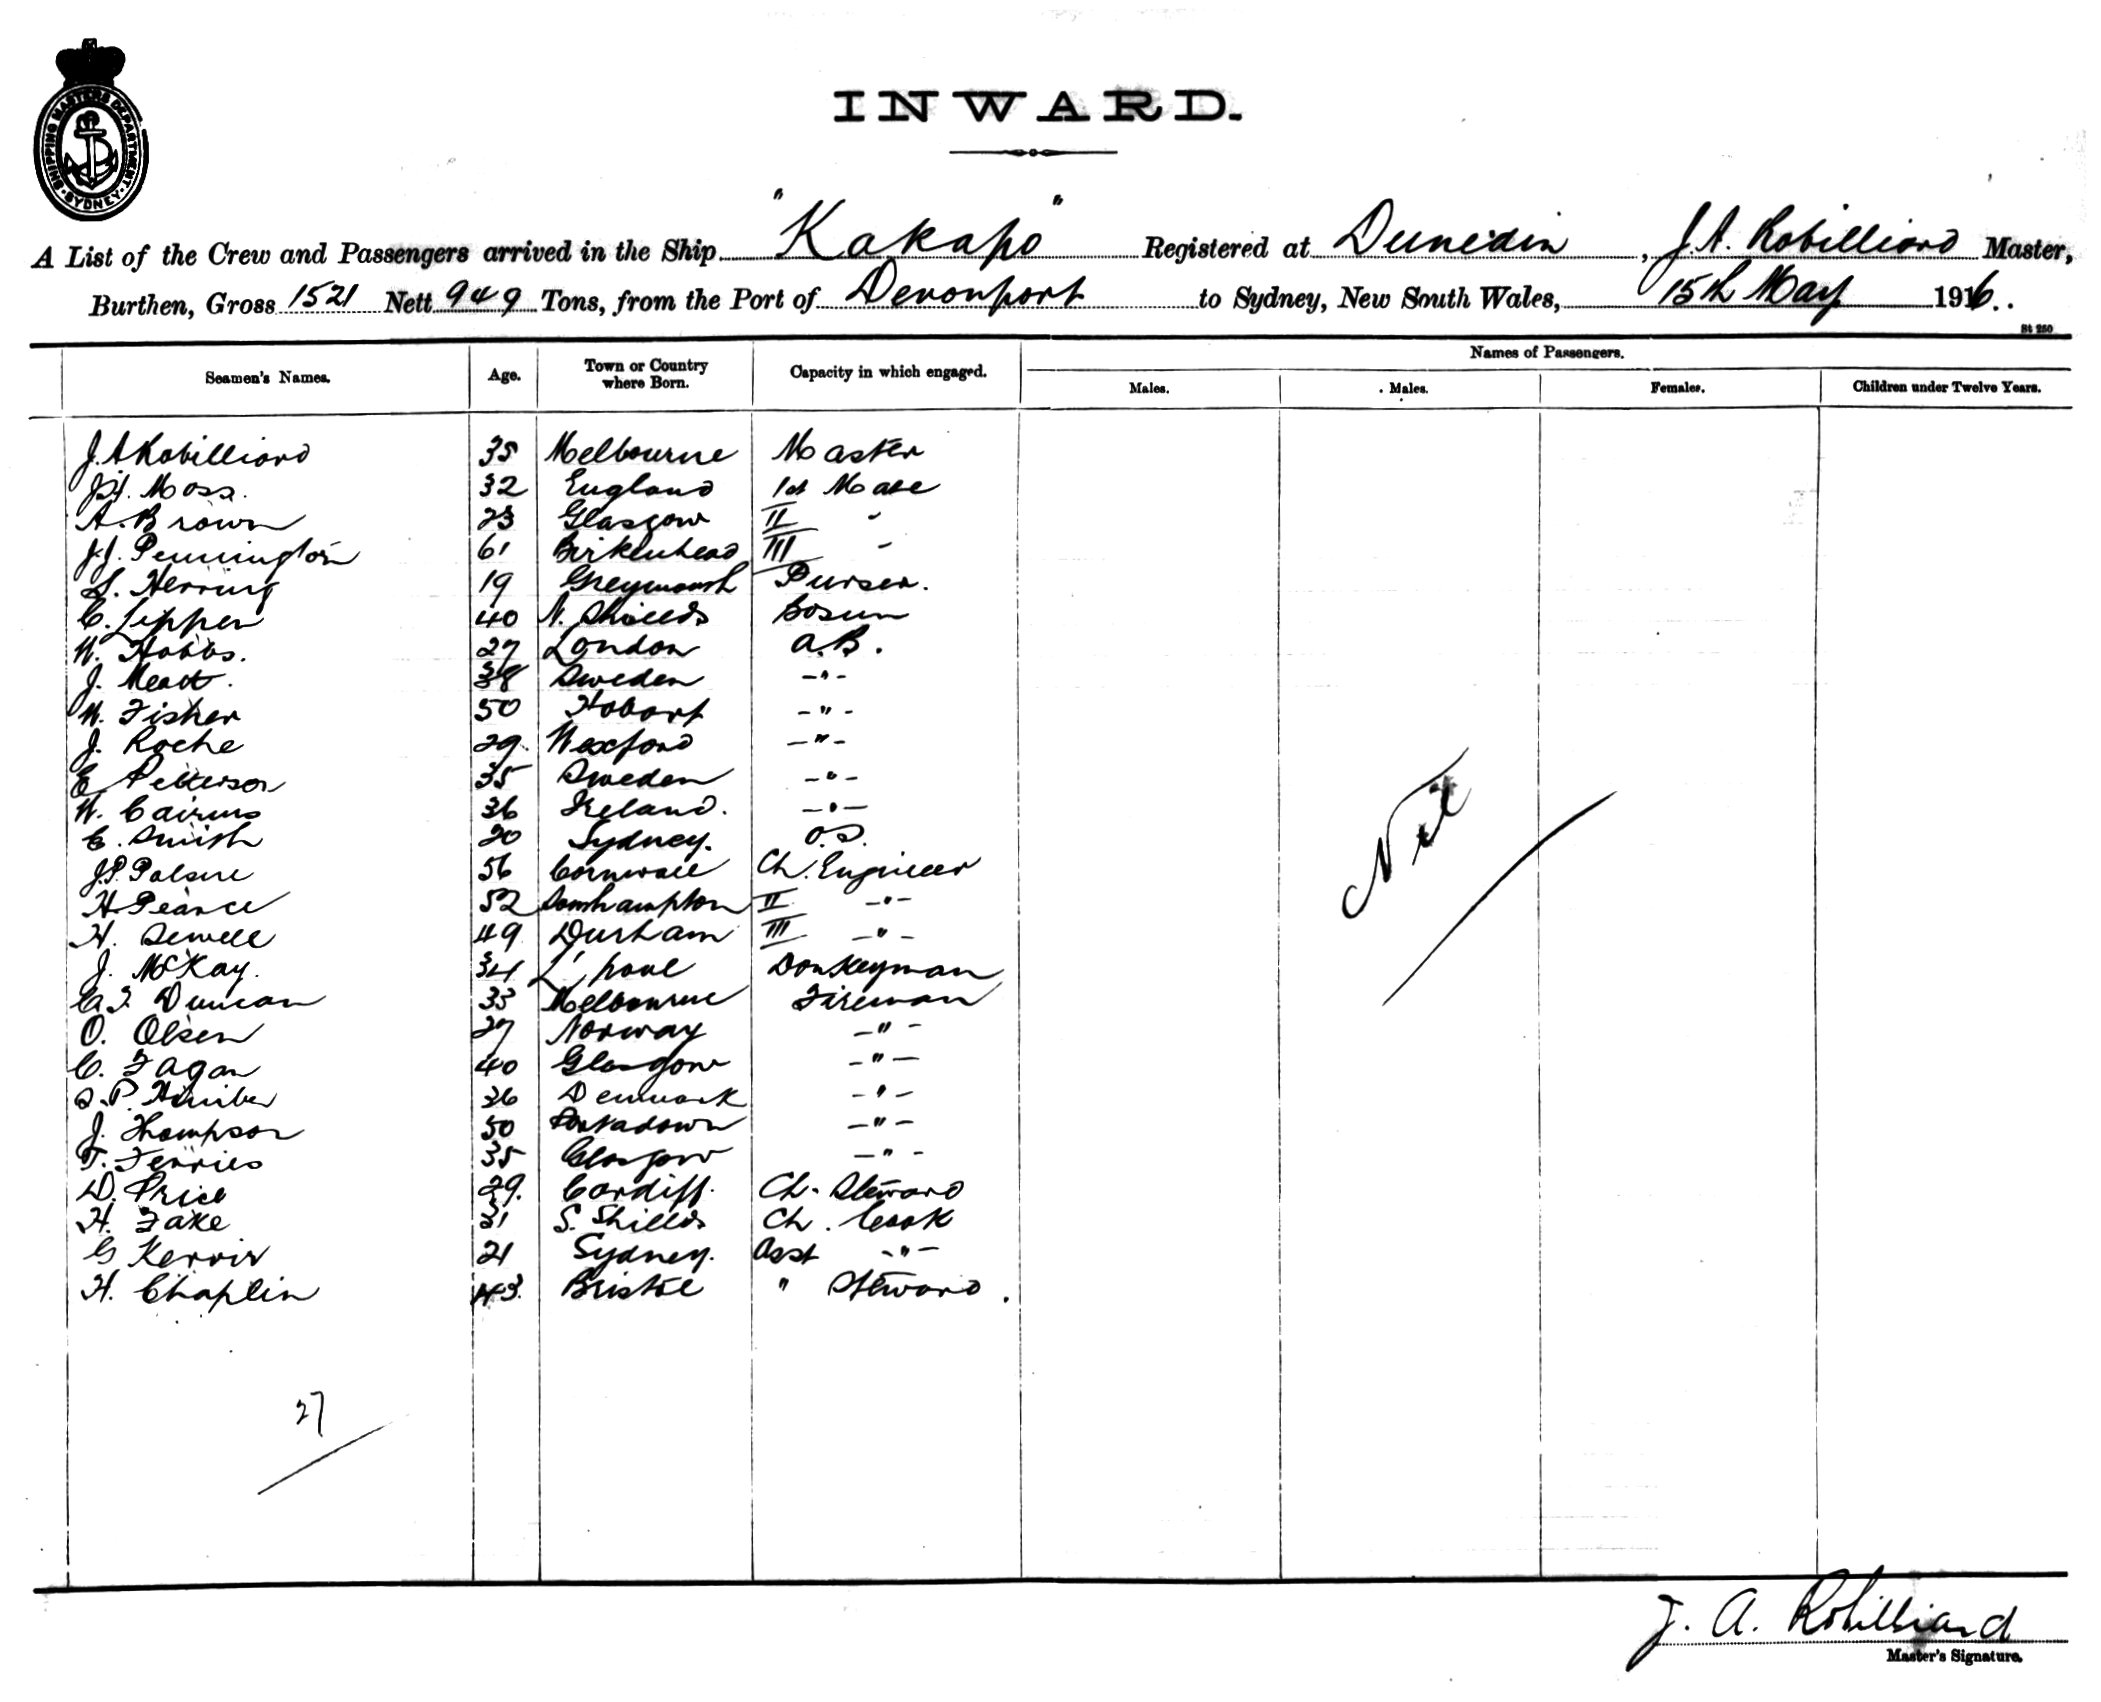 SHIPPING MASTERS DEPARTMENT. SYDNEY
INWARD.
A List of the Crew and Passengers arrived in the Ship "Kakapo" Registered at Dunedin, J. A. Robilliard Master,
Burthen, Gross 1521 Nett 949 Tons, from the Port of Devonport to Sydney, New South Wales, 15th May 1916.
St 250
Seamen's Names. Age. Town or Country where Born. Capacity in which engaged. Names of Passengers.
Males. Males. Females. Children under Twelve Years.
J. A Robilliard 35 Melbourne Master
J.H. Moss. 32 England 1st Mate
A. Brown 23 Glasgow II "
J.J. Pennington 61 Birkenhead III "
S. Herring 19 Greymouth Purser.
C. Lipper 40 N. Shields Bosun
W. Hobbs. 27 London A.B.
J. 38 Sweden -"-
W. Fisher 50 Hobart -"-
J. Roche 29 Wexford -"-
E Petterson 35 Sweden -"-
W. Cairns 36 Ireland. -"-
C. Smith 20 Sydney. O.S.
J.P. 56 Cornwall Ch. Engineer
H. Pearce 52 Southampton II -"-
H. Sewell 49 Durham III -"-
J. McKay. 34 L'pool Donkeyman
C. F. Duncan 33 Melbourne Fireman
O. Olsen 27 Norway -"-
C. Fagan 40 Glasgow -"-
P. 36 Denmark -"-
J. Thompson 50 Portadown -"-
T. Ferries 35 Glasgow -"-
D. Price 29. Cardiff. Ch. Steward
H. Fake 31 S. Shields Ch. Cook
G Kerrir 21 Sydney. Asst -"-
H. Chaplin 43. Bristol " Steward.
Nil
27
J. A. Robilliard
Master's Signature.